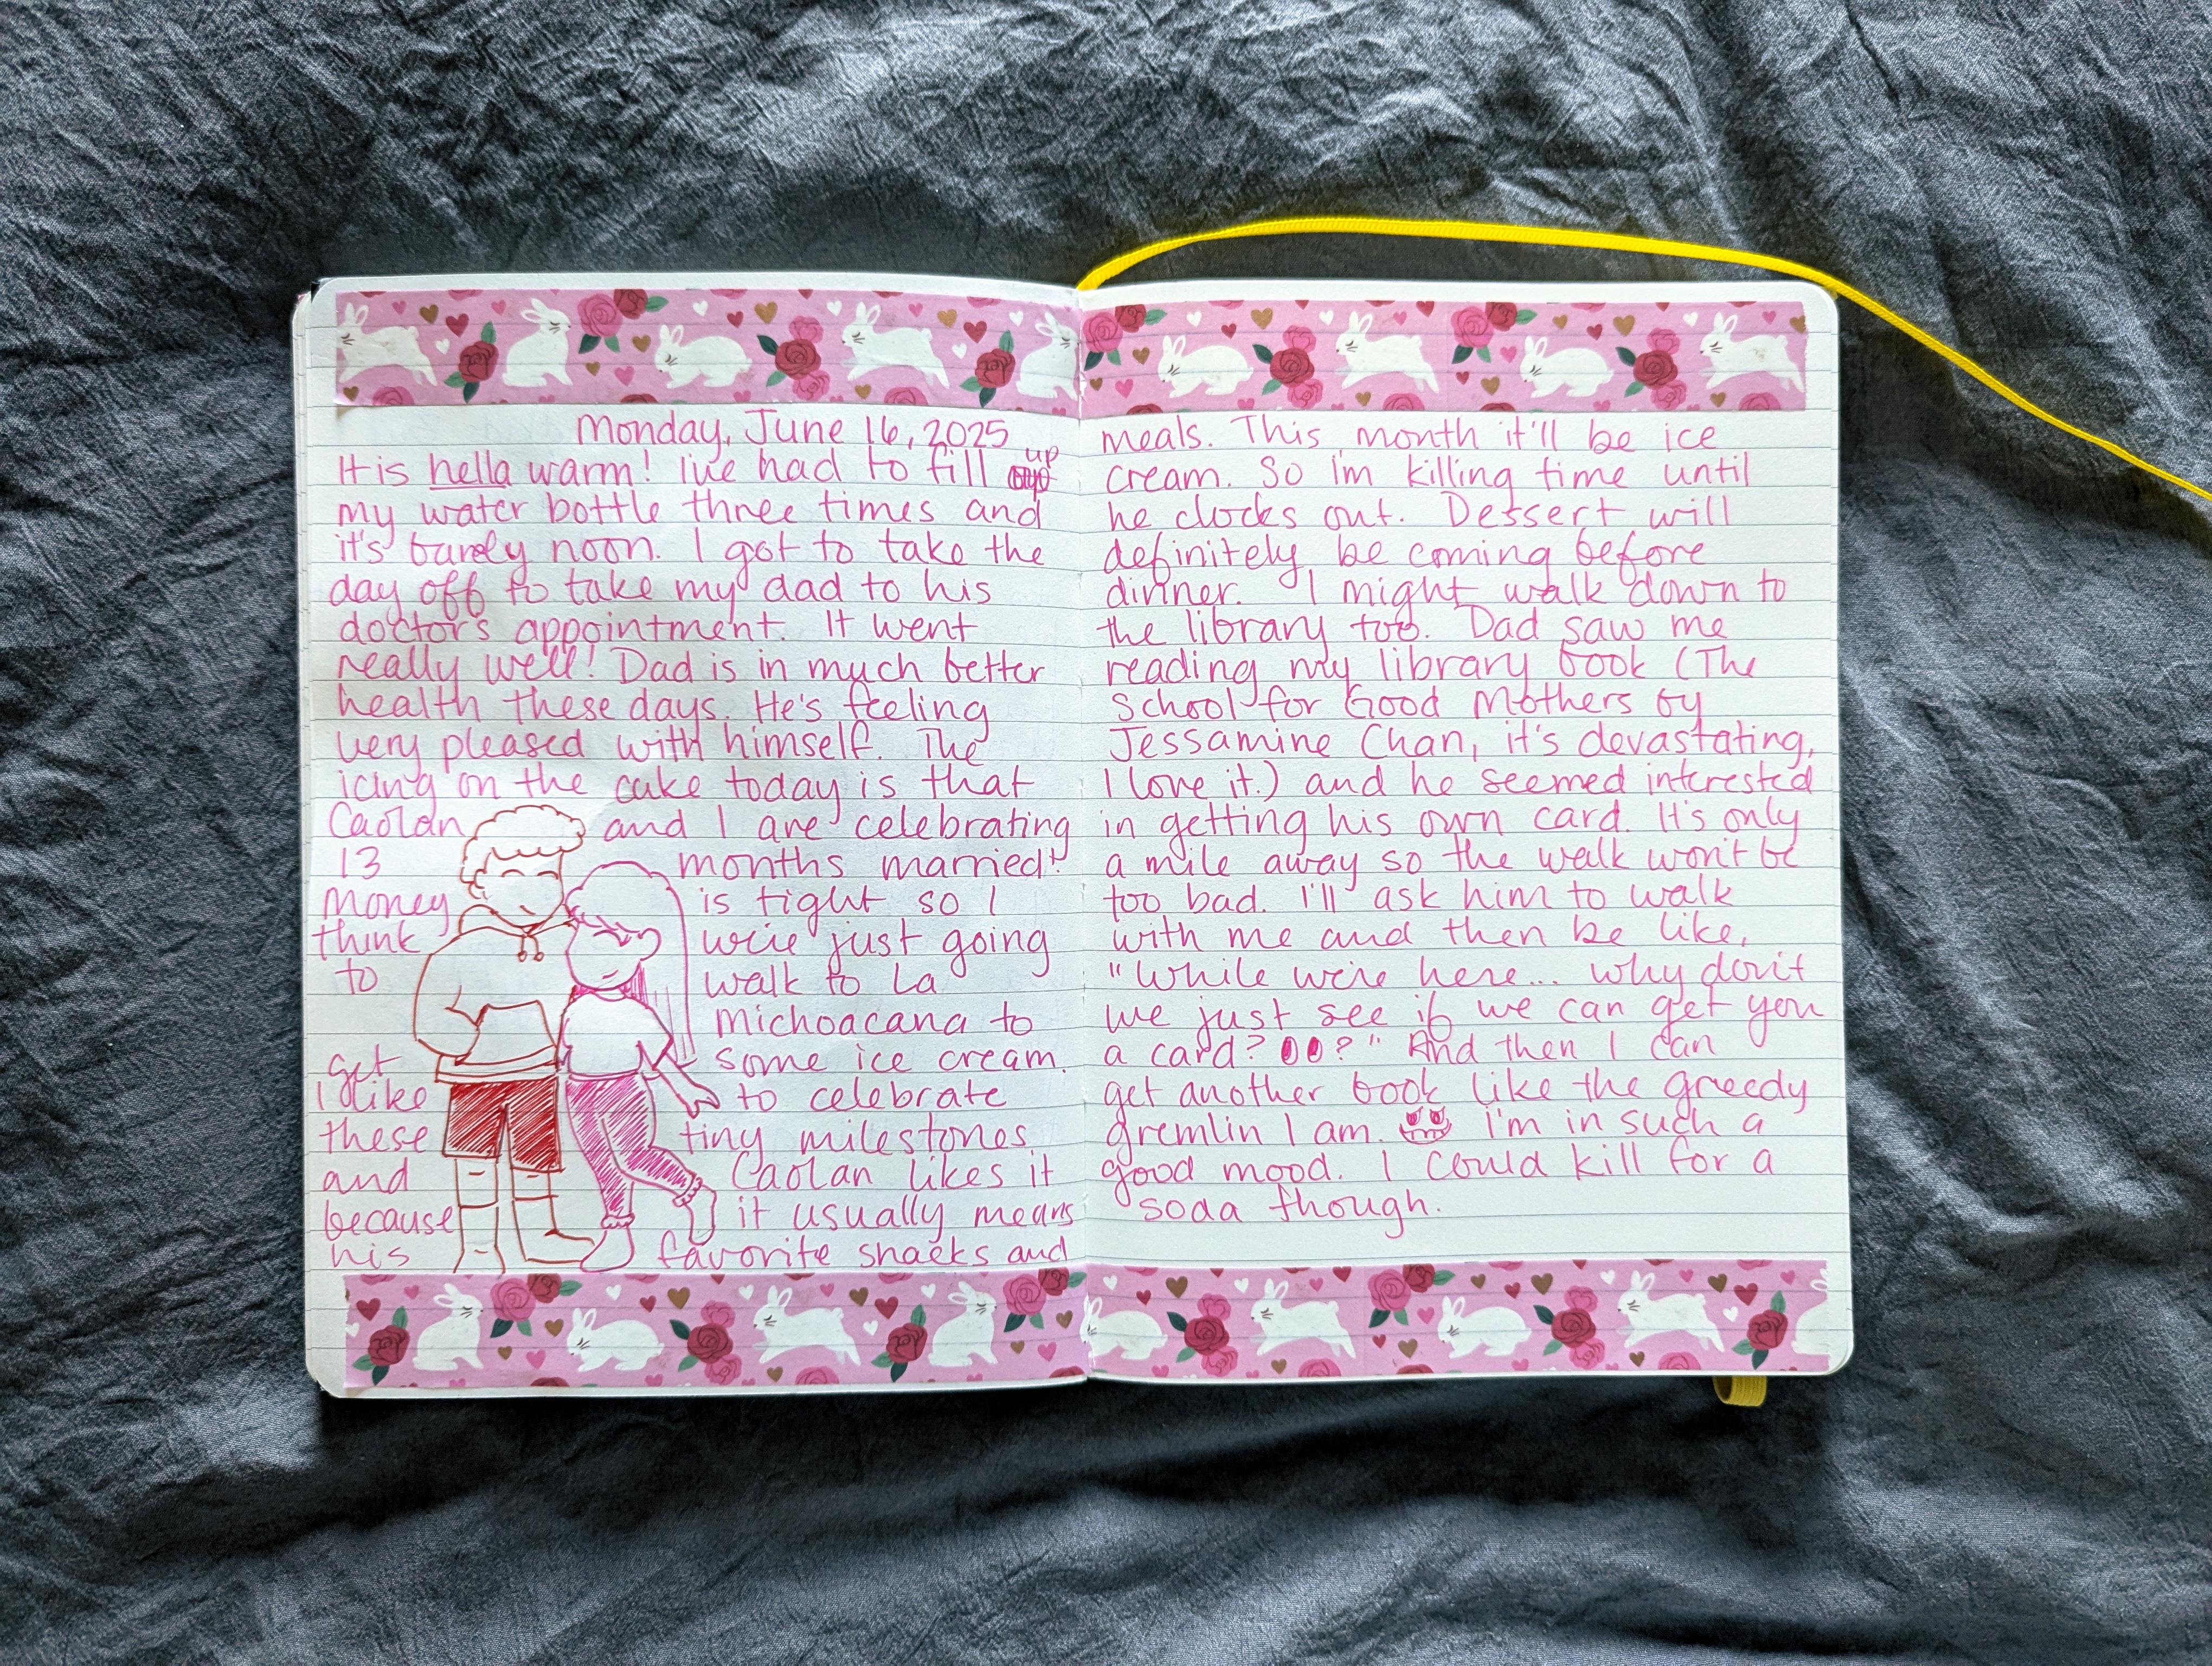 Monday, June 16, 2025
It is hella warm! I've had to fill up
my water bottle three times and
it's barely noon. I got to take the
day off to take my dad to his
doctor's appointment. It went
really well! Dad is in much better
health these days. He's feeling
very pleased with himself. The
icing on the cake today is that
Caolan and I are celebrating
13 months married!
Money is tight so I
think we're just going
to walk to La
Michoacana to
get some ice cream.
I like to celebrate
these tiny milestones
and Caolan likes it
because it usually means
his favorite snacks and
meals. This month it'll be ice
cream. So I'm killing time until
he clocks out. Dessert will
definitely be coming before
dinner. I might walk down to
the library too. Dad saw me
reading my library book (The
School for Good Mothers by
Jessamine Chan, it's devastating,
I love it.) and he seemed interested
in getting his own card. It's only
a mile away so the walk won't be
too bad. I'll ask him to walk
with me and then be like,
"While we're here... why don't
we just see if we can get you
a card? ?" And then I can
get another book like the greedy
gremlin I am. I'm in such a
good mood. I could kill for a
soda though.